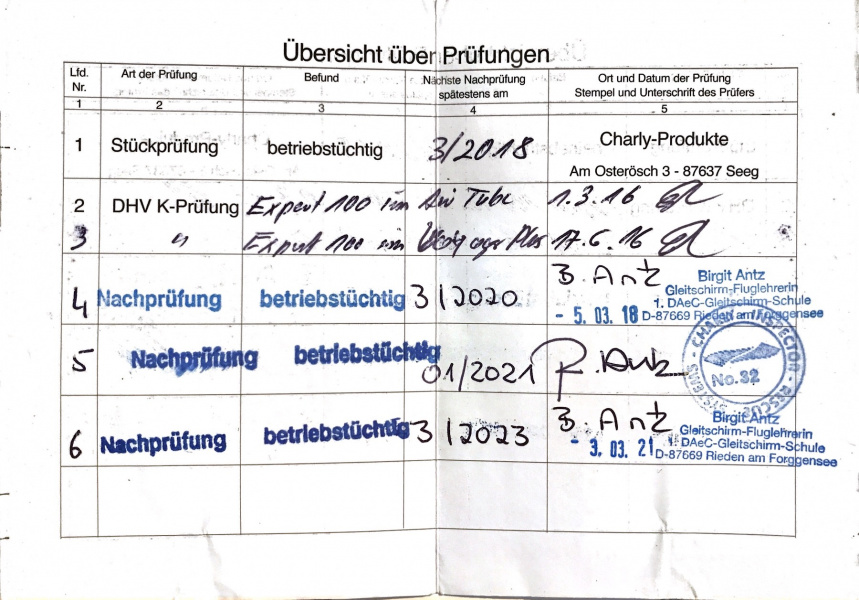 Übersicht über Prüfungen
Lfd. Nr. Art der Prüfung Befund Nächste Nachprüfung spätestens am Ort und Datum der Prüfung Stempel und Unterschrift des Prüfers
1 2 3 4 5
1 Stückprüfung betriebstüchtig 3/2018 Charly-Produkte
Am Osterösch 3 - 87637 Seeg
2 DHV K-Prüfung Expert 100 im Air Tube 1.3.16
3 " Expert 100 im Plus 17.6.16
4 Nachprüfung betriebstüchtig 3/2020 B. Antz
Birgit Antz
Gleitschirm-Fluglehrerin
1. DAeC-Gleitschirm-Schule
- 5. 03. 18 D-87669 Rieden am Forggensee
5 Nachprüfung betriebstüchtig 01/2021 R. Antz
CHARLY INSPECTOR - RESCUE SYSTEMS -
No.32
6 Nachprüfung betriebstüchtig 3/2023 B. Antz
Birgit Antz
Gleitschirm-Fluglehrerin
1. DAeC-Gleitschirm-Schule
- 3. 03. 21 D-87669 Rieden am Forggensee